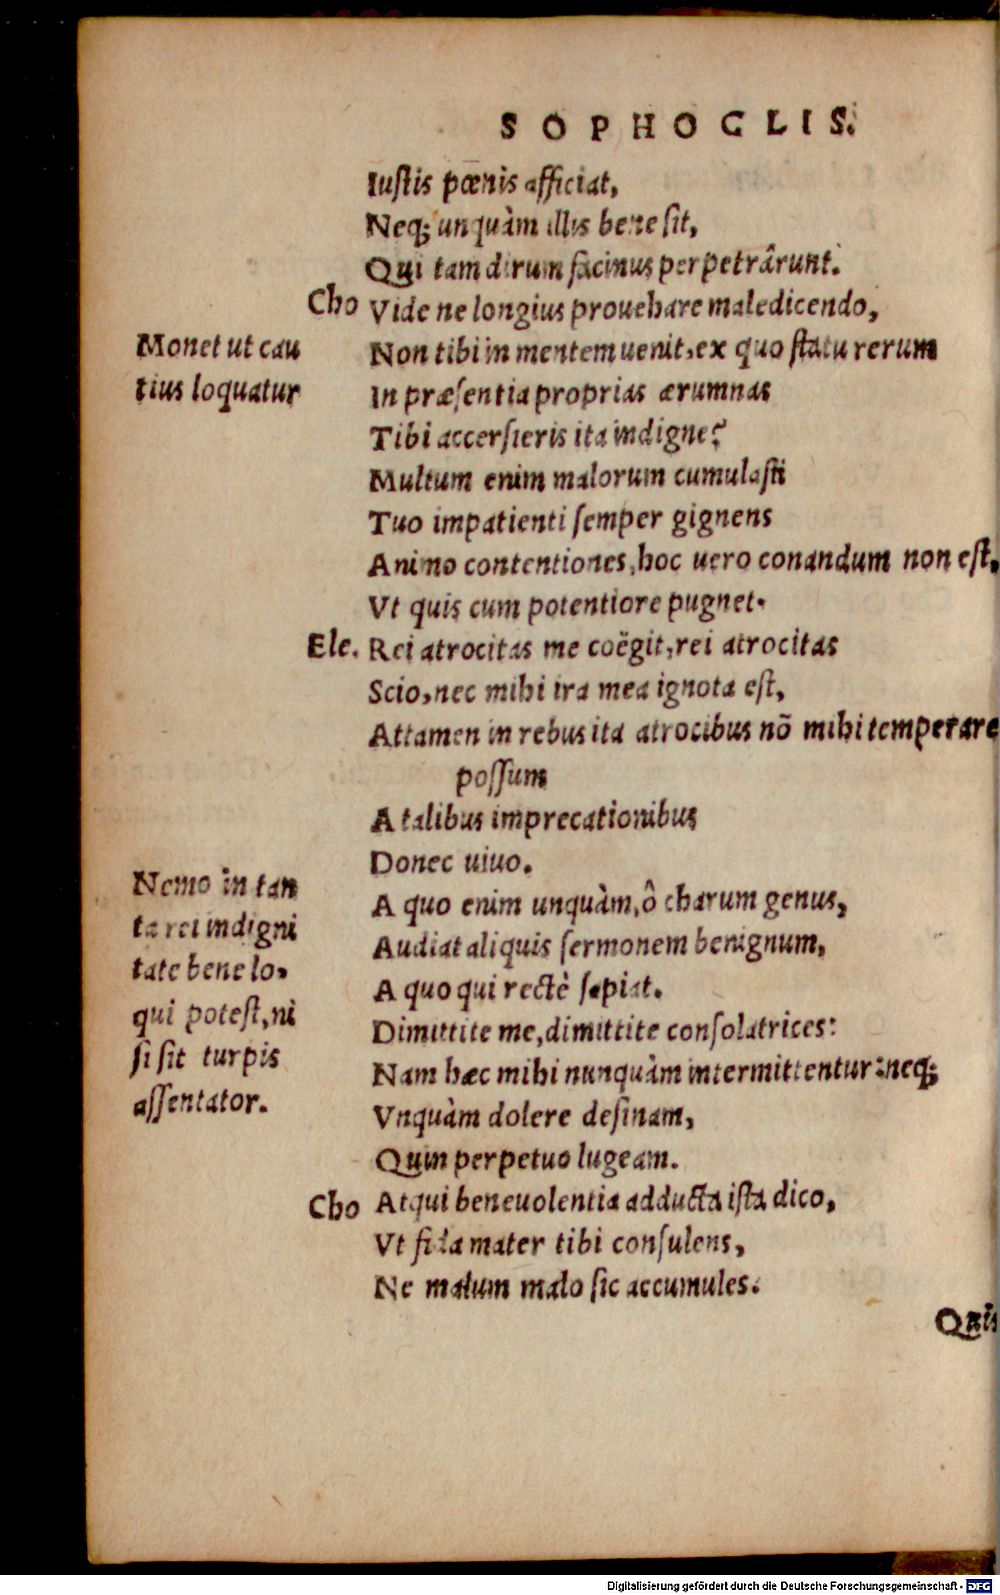 SOPHOCLIS.
Iustis pœnis afficiat,
Neq; unquàm illis bene sit,
Qui tam dirum facinus perpetrârunt.
Cho Vide ne longius prouehare maledicendo,
Monet ut cau
tius loquatur
Non tibi in mentem uenit, ex quo statu rerum
In præsentia proprias ærumnas
Tibi accersieris ita indigne?
Multum enim malorum cumulasti
Tuo impatienti semper gignens
Animo contentiones, hoc uero conandum non est,
Vt quis cum potentiore pugnet.
Ele. Rei atrocitas me coëgit, rei atrocitas
Scio, nec mihi ira mea ignota est,
Attamen in rebus ita atrocibus nõ mihi temperare
possum
A talibus imprecationibus
Donec uiuo.
Nemo in tan
ta rei indigni
tate bene lo-
qui potest, ni
si sit turpis
assentator.
A quo enim unquàm, ô charum genus,
Audiat aliquis sermonem benignum,
A quo qui rectè sapiat.
Dimittite me, dimittite consolatrices:
Nam hæc mihi nunquàm intermittentur: neq;
Vnquàm dolere desinam,
Quin perpetuo lugeam.
Cho Atqui beneuolentia adducta ista dico,
Vt fida mater tibi consulens,
Ne malum malo sic accumules.
Quis
Digitalisierung gefördert durch die Deutsche Forschungsgemeinschaft - DFG